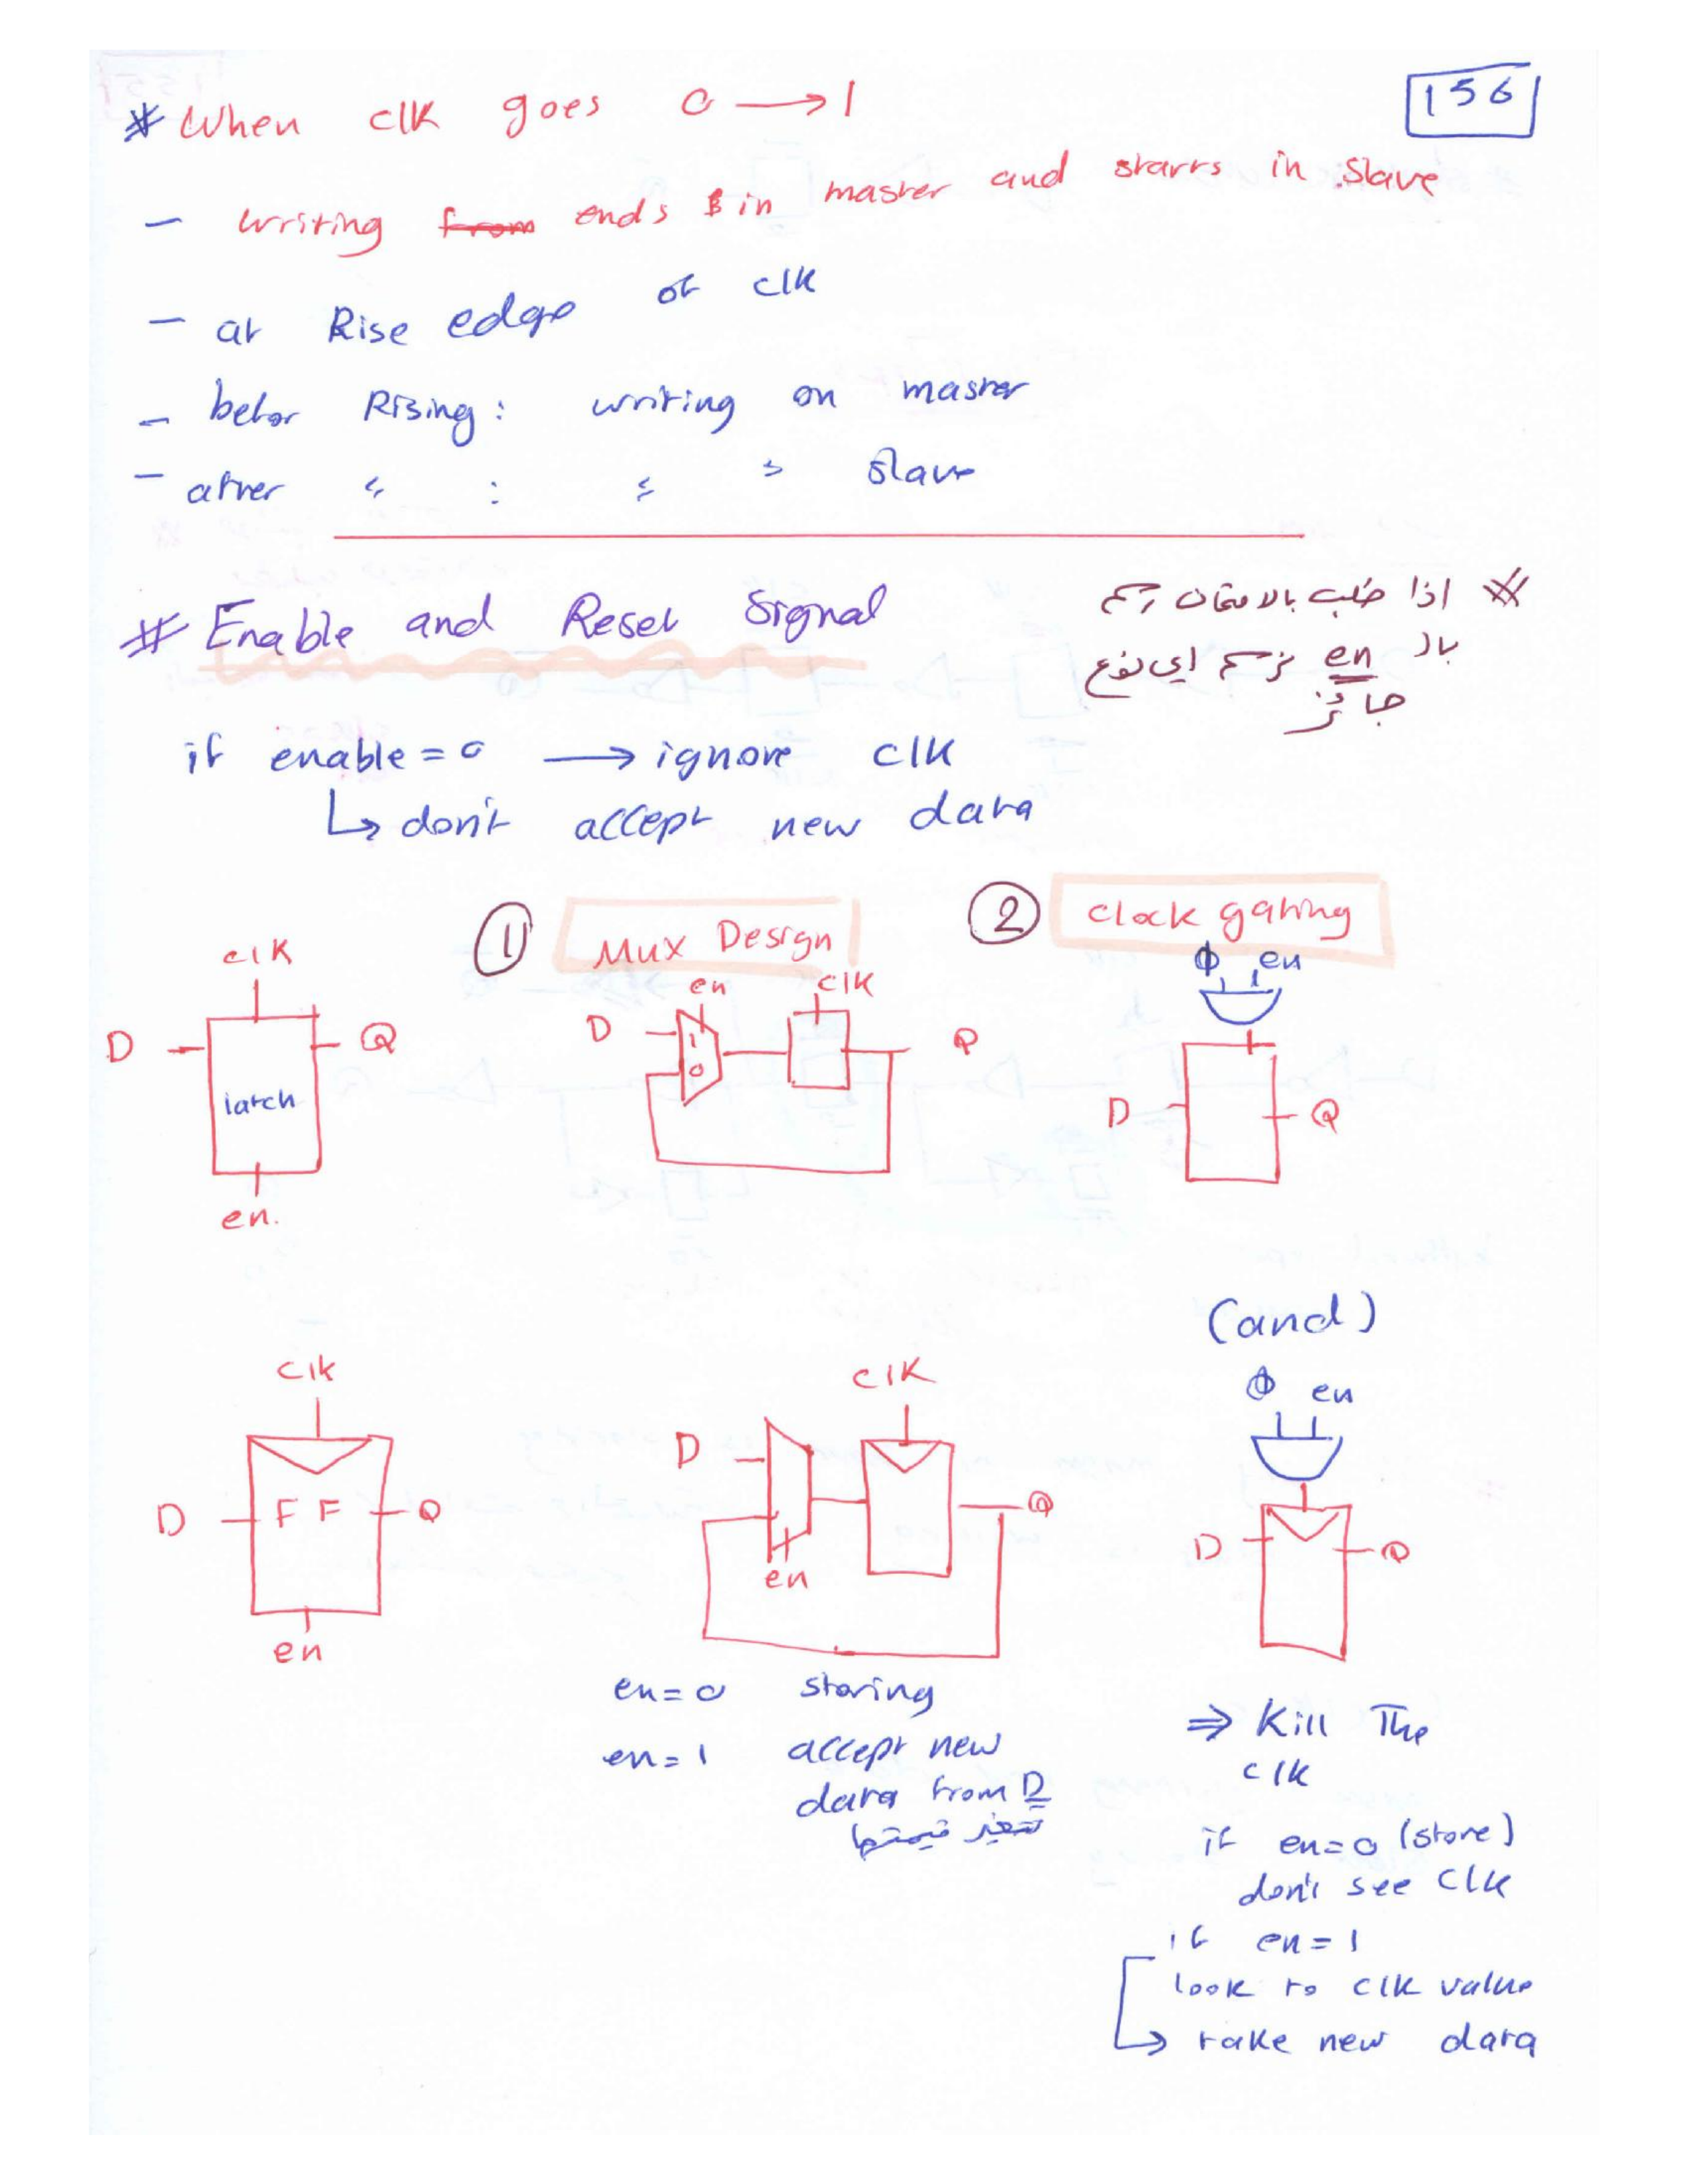 156
* When clk goes 0 → 1
- writing from ends in master and starts in slave
- at Rise edge of clk
- befor Rising : writing on master
- after " : " " slave
# Enable and Reset Signal
* اذا طلب بالامتحان رسم
بال en نرسم اي نوع
جائز
if enable = 0 → ignore clk
↳ don't accept new data
① Mux Design
② Clock gating
clk
D
Q
latch
en.
en
clk
D
1
0
Q
Φ en
D
Q
(and)
clk
D
FF
Q
en
clk
D
en
Q
Φ en
D
Q
en = 0 storing
en = 1 accept new
data from D
تتغير قيمتها
⇒ Kill The
clk
if en = 0 (store)
don't see clk
if en = 1
look to clk value
↳ take new data